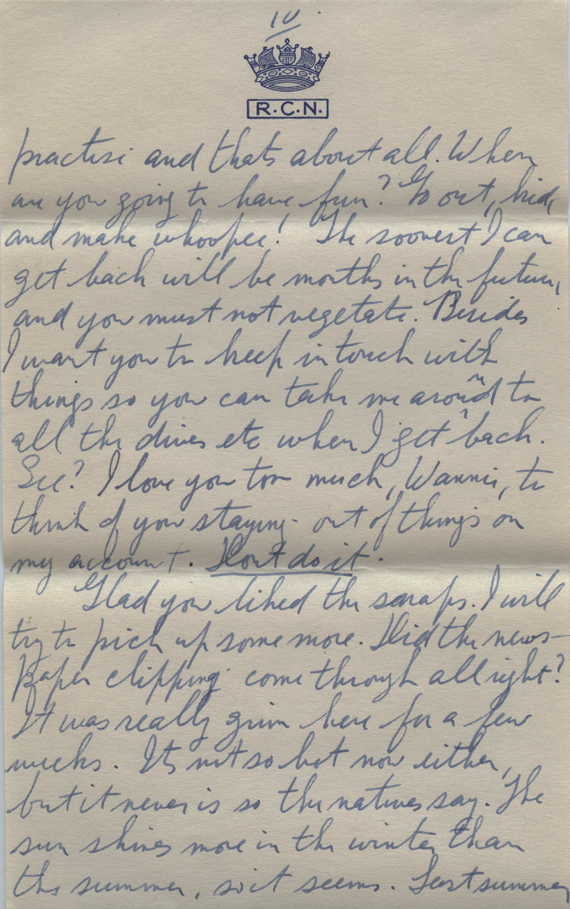 10
R.C.N.
practise and thats about all. When
are you going to have fun? Go out, kid,
and make whoopee! The soonest I can
get back will be months in the future,
and you must not vegetate. Besides
I want you to keep in touch with
things so you can take me around to
all the dives etc when I get back.
See? I love you too much, Wannie, to
think of you staying out of things on
my account. Don't do it.
Glad you liked the scraps. I will
try to pick up some more. Did the news-
paper clipping come through all right?
It was really grim here for a few
weeks. Its not so hot now either,
but it never is so the natives say. The
sun shines more in the winter than
the summer, so it seems. Last summer